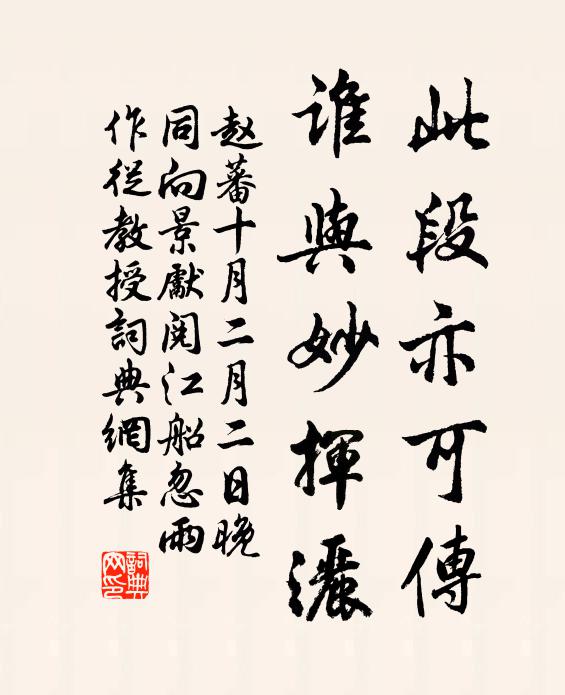 此段亦可傳
誰與妙揮灑
赵蕃十月二月二日晚
同向景獻閱江船忽雨
作從教授詞典網集
詞典网印